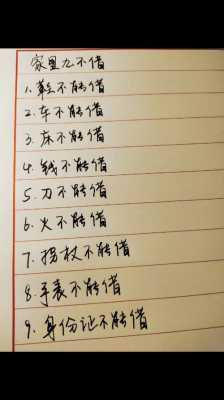 家里九不借
1.鞋不能借
2.车不能借
3.床不能借
4.钱不能借
5.刀不能借
6.火不能借
7.拐杖不能借
8.手表不能借
9.身份证不能借